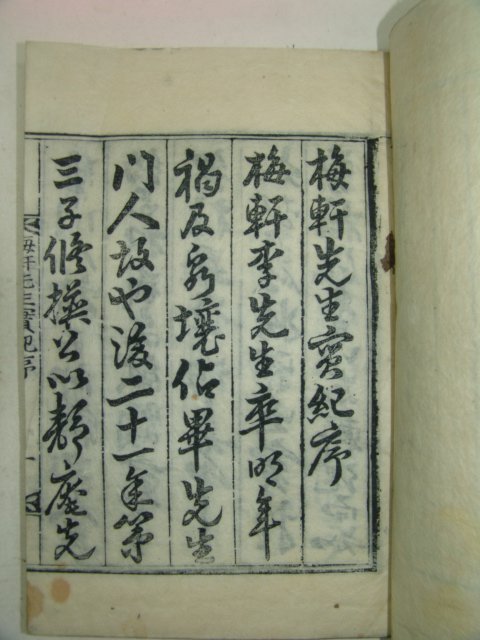 梅軒先生實紀序
梅軒李先生卒明年
禍及泉壤佔畢先生
門人故也後二十一年第
三子脩撰公以靜庵先
梅軒先生實紀序
一